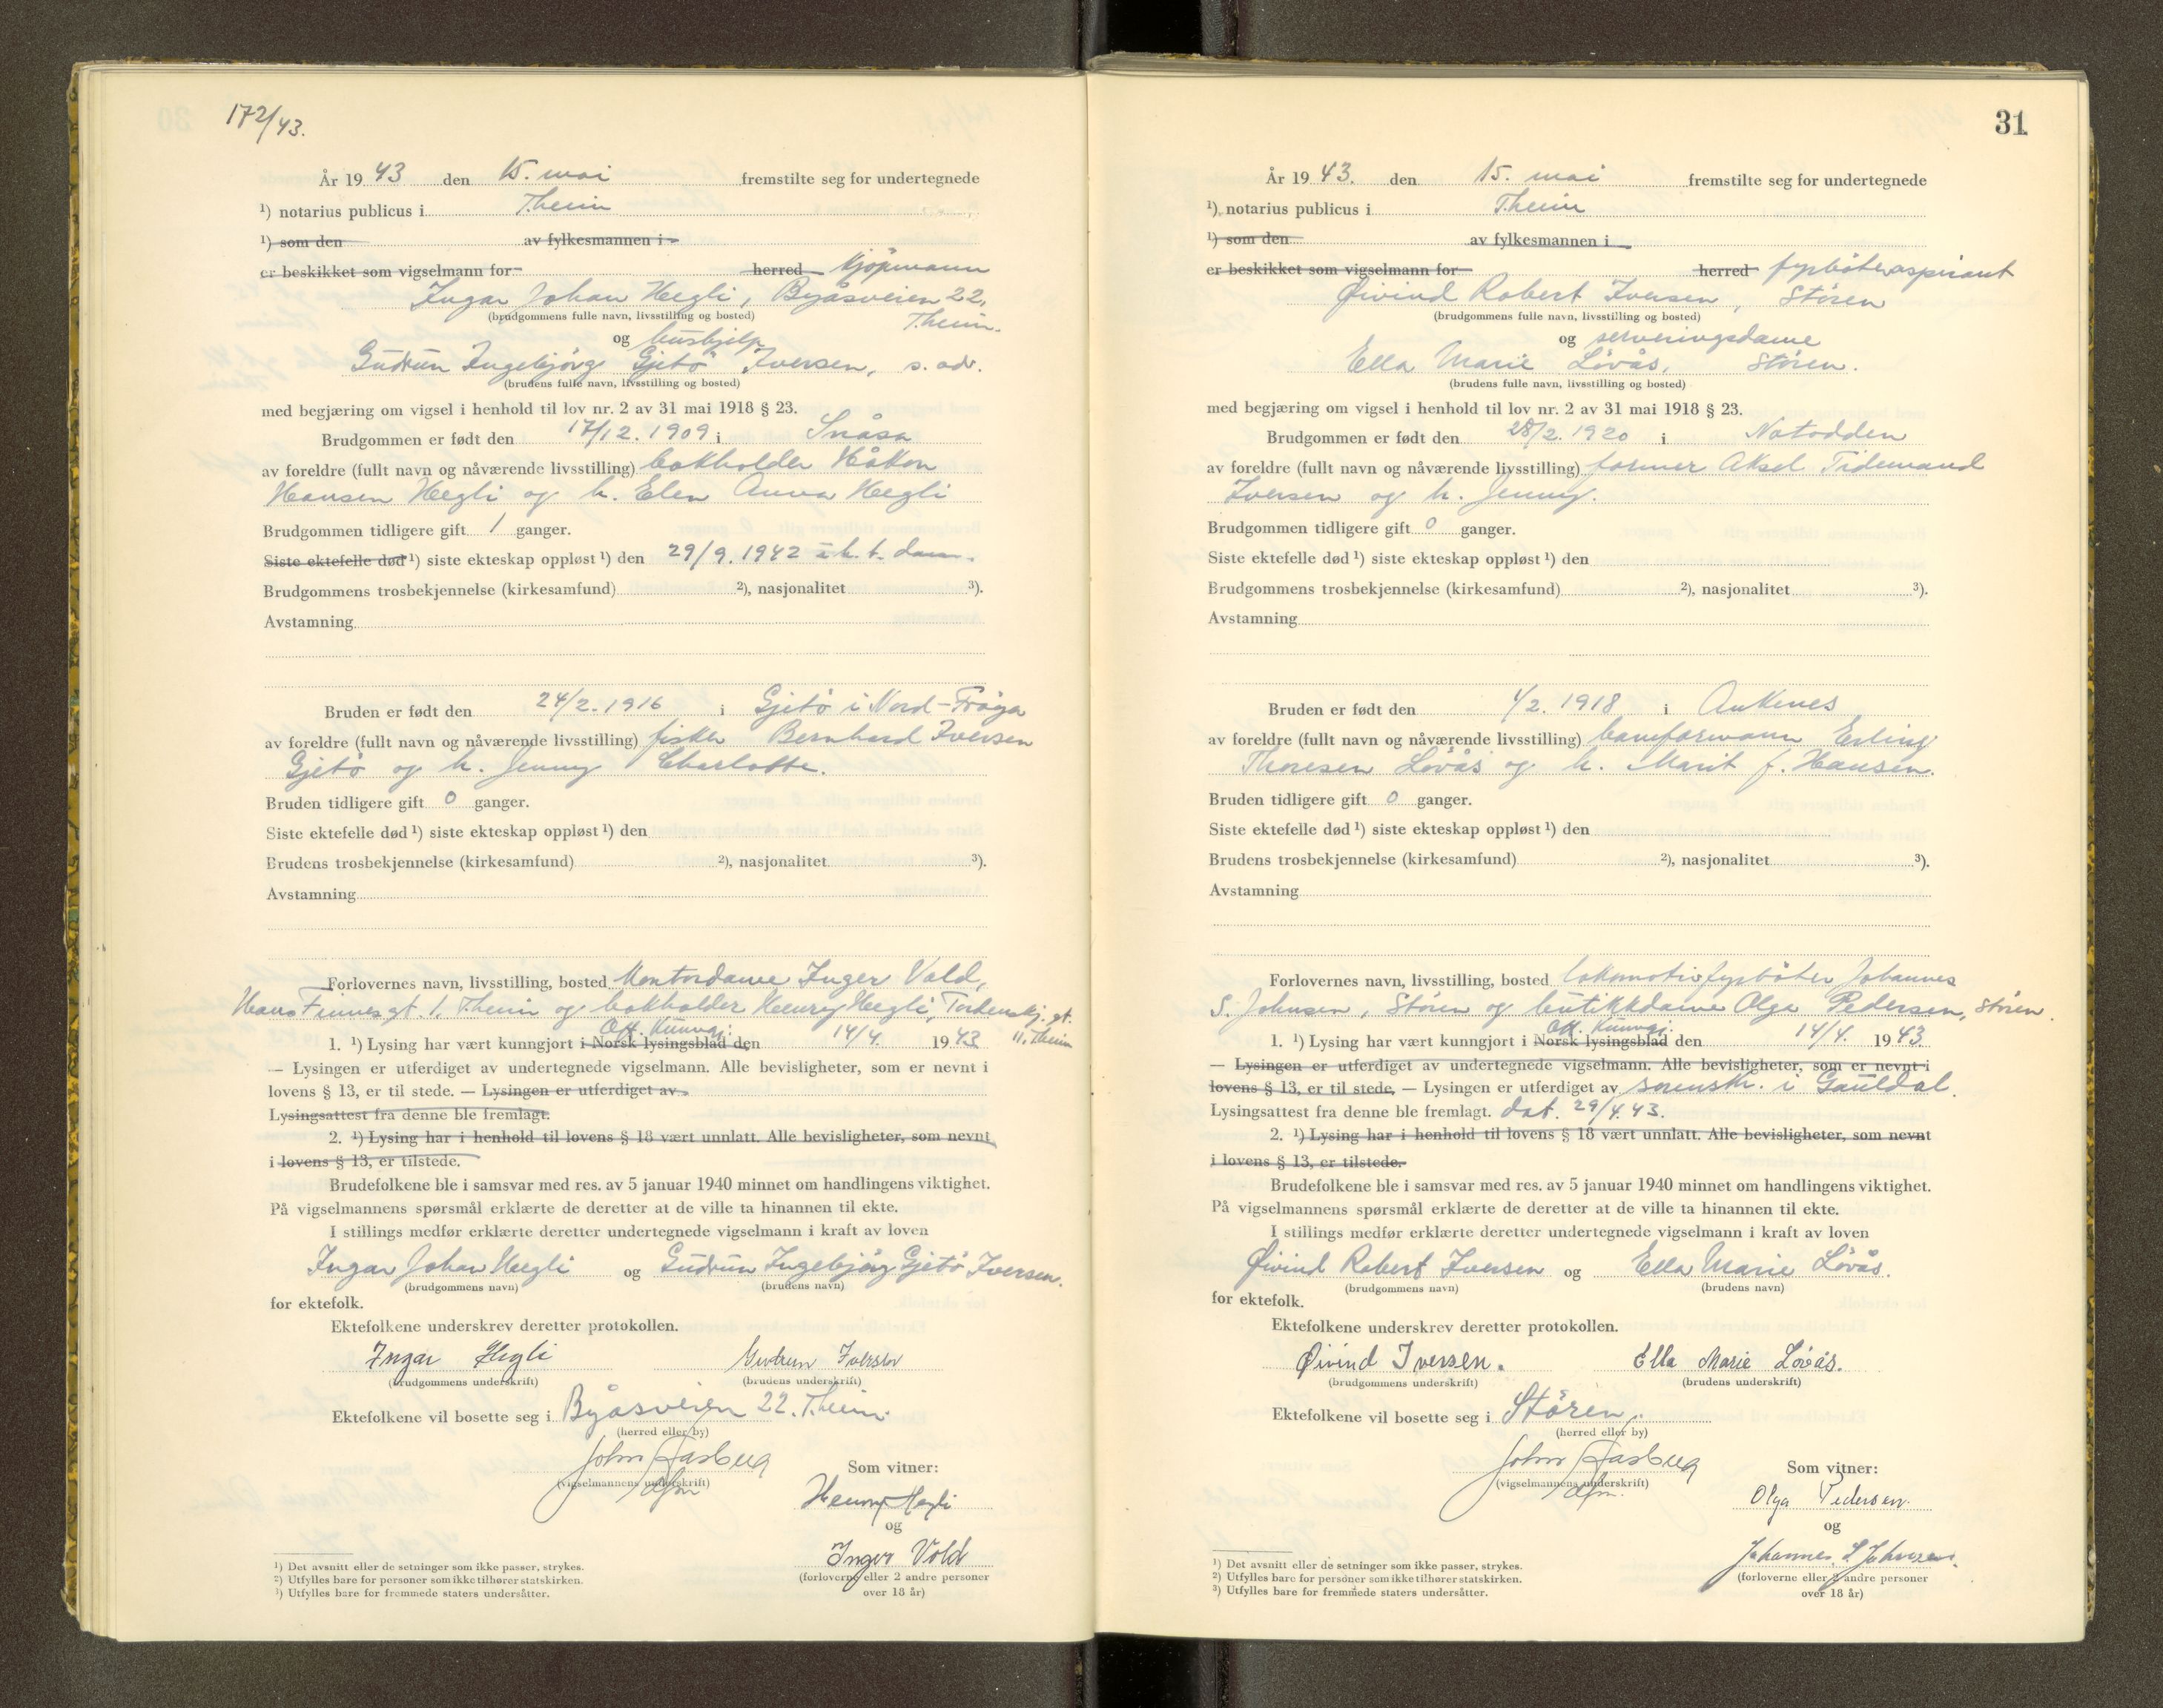 172/43.
År 19 43 den 15. mai fremstilte seg for undertegnede
¹) notarius publicus i T.heim
¹) som den av fylkesmannen i
er beskikket som vigselmann for herred kjøpmann
Ingar Johan Hegli, Byåsveien 22,
(brudgommens fulle navn, livsstilling og bosted) T.heim.
og hushjelp
Gudrun Ingebjörg Gjetö Iversen, s. adr.
(brudens fulle navn, livsstilling og bosted)
med begjæring om vigsel i henhold til lov nr. 2 av 31 mai 1918 § 23.
Brudgommen er født den 17/12. 1909 i Snåsa
av foreldre (fullt navn og nåværende livsstilling) bokholder Håkon
Hansen Hegli og h. Elen Anna Hegli
Brudgommen tidligere gift 1 ganger.
Siste ektefelle død ¹) siste ekteskap oppløst ¹) den 29/9. 1942 i h. t. dom.
Brudgommens trosbekjennelse (kirkesamfund) ²), nasjonalitet ³).
Avstamning
Bruden er født den 24/2. 1916 i Gjetö i Nord-Fröya
av foreldre (fullt navn og nåværende livsstilling) fisker Bernhard Iversen
Gjetö og h. Jenny Charlotte.
Bruden tidligere gift 0 ganger.
Siste ektefelle død ¹) siste ekteskap oppløst ¹) den
Brudens trosbekjennelse (kirkesamfund) ²), nasjonalitet ³).
Avstamning
Forlovernes navn, livsstilling, bosted Kontordame Inger Vold,
Hans Finnes gt. 1, T.heim og bokholder Henry Hegli, Tordenskj. gt.
Off. Kunngj:
1. ¹) Lysing har vært kunngjort i Norsk lysingsblad den 14/4. 19 43 11. T.heim
— Lysingen er utferdiget av undertegnede vigselmann. Alle bevisligheter, som er nevnt i
lovens § 13, er til stede. — Lysingen er utferdiget av
Lysingsattest fra denne ble fremlagt.
2. ¹) Lysing har i henhold til lovens § 18 vært unnlatt. Alle bevisligheter, som nevnt
i lovens § 13, er tilstede.
Brudefolkene ble i samsvar med res. av 5 januar 1940 minnet om handlingens viktighet.
På vigselmannens spørsmål erklærte de deretter at de ville ta hinannen til ekte.
I stillings medfør erklærte deretter undertegnede vigselmann i kraft av loven
Ingar Johan Hegli og Gudrun Ingebjörg Gjetö Iversen.
(brudgommens navn) (brudens navn)
for ektefolk.
Ektefolkene underskrev deretter protokollen.
Ingar Hegli Gudrun Iversen
(brudgommens underskrift) (brudens underskrift)
Ektefolkene vil bosette seg i Byåsveien 22. T.heim.
(herred eller by)
John Aasberg
(vigselmannens underskrift) Som vitner:
Henry Hegli
og
Inger Vold
(forloverne eller 2 andre personer
over 18 år)
¹) Det avsnitt eller de setninger som ikke passer, strykes.
²) Utfylles bare for personer som ikke tilhører statskirken.
³) Utfylles bare for fremmede staters undersåtter.
31
År 19 43. den 15. mai fremstilte seg for undertegnede
¹) notarius publicus i T.heim
¹) som den av fylkesmannen i
er beskikket som vigselmann for herred fyrböteraspirant
Øivind Robert Iversen, Stören
(brudgommens fulle navn, livsstilling og bosted)
og serveringsdame
Ella Marie Lövås, Stören.
(brudens fulle navn, livsstilling og bosted)
med begjæring om vigsel i henhold til lov nr. 2 av 31 mai 1918 § 23.
Brudgommen er født den 28/2. 1920 i Notodden
av foreldre (fullt navn og nåværende livsstilling) former Aksel Tidemand
Iversen og h. Jenny.
Brudgommen tidligere gift 0 ganger.
Siste ektefelle død ¹) siste ekteskap oppløst ¹) den
Brudgommens trosbekjennelse (kirkesamfund) ²), nasjonalitet ³).
Avstamning
Bruden er født den 4/2. 1918 i Ankenes
av foreldre (fullt navn og nåværende livsstilling) baneformann Erling
Thoresen Lövås og h. Marit f. Hansen.
Bruden tidligere gift 0 ganger.
Siste ektefelle død ¹) siste ekteskap oppløst ¹) den
Brudens trosbekjennelse (kirkesamfund) ²), nasjonalitet ³).
Avstamning
Forlovernes navn, livsstilling, bosted lokomotivfyrböter Johannes
S. Johnsen, Stören og butikkdame Olga Pedersen, Stören.
Off. Kunngj.
1. ¹) Lysing har vært kunngjort i Norsk lysingsblad den 14/4. 19 43.
— Lysingen er utferdiget av undertegnede vigselmann. Alle bevisligheter, som er nevnt i
lovens § 13, er til stede, — Lysingen er utferdiget av sorenskr. i Gauldal.
Lysingsattest fra denne ble fremlagt. dat. 29/4. 43.
2. ¹) Lysing har i henhold til lovens § 18 vært unnlatt. Alle bevisligheter, som nevnt
i lovens § 13, er tilstede.
Brudefolkene ble i samsvar med res. av 5 januar 1940 minnet om handlingens viktighet.
På vigselmannens spørsmål erklærte de deretter at de ville ta hinannen til ekte.
I stillings medfør erklærte deretter undertegnede vigselmann i kraft av loven
Øivind Robert Iversen og Ella Marie Lövås.
(brudgommens navn) (brudens navn)
for ektefolk.
Ektefolkene underskrev deretter protokollen.
Øivind Iversen. Ella Marie Lövås.
(brudgommens underskrift) (brudens underskrift)
Ektefolkene vil bosette seg i Stören.
(herred eller by)
John Aasberg
(vigselmannens underskrift) Som vitner:
Olga Pedersen.
og
Johannes S. Johnsen.
(forloverne eller 2 andre personer
over 18 år)
¹) Det avsnitt eller de setninger som ikke passer, strykes.
²) Utfylles bare for personer som ikke tilhører statskirken.
³) Utfylles bare for fremmede staters undersåtter.